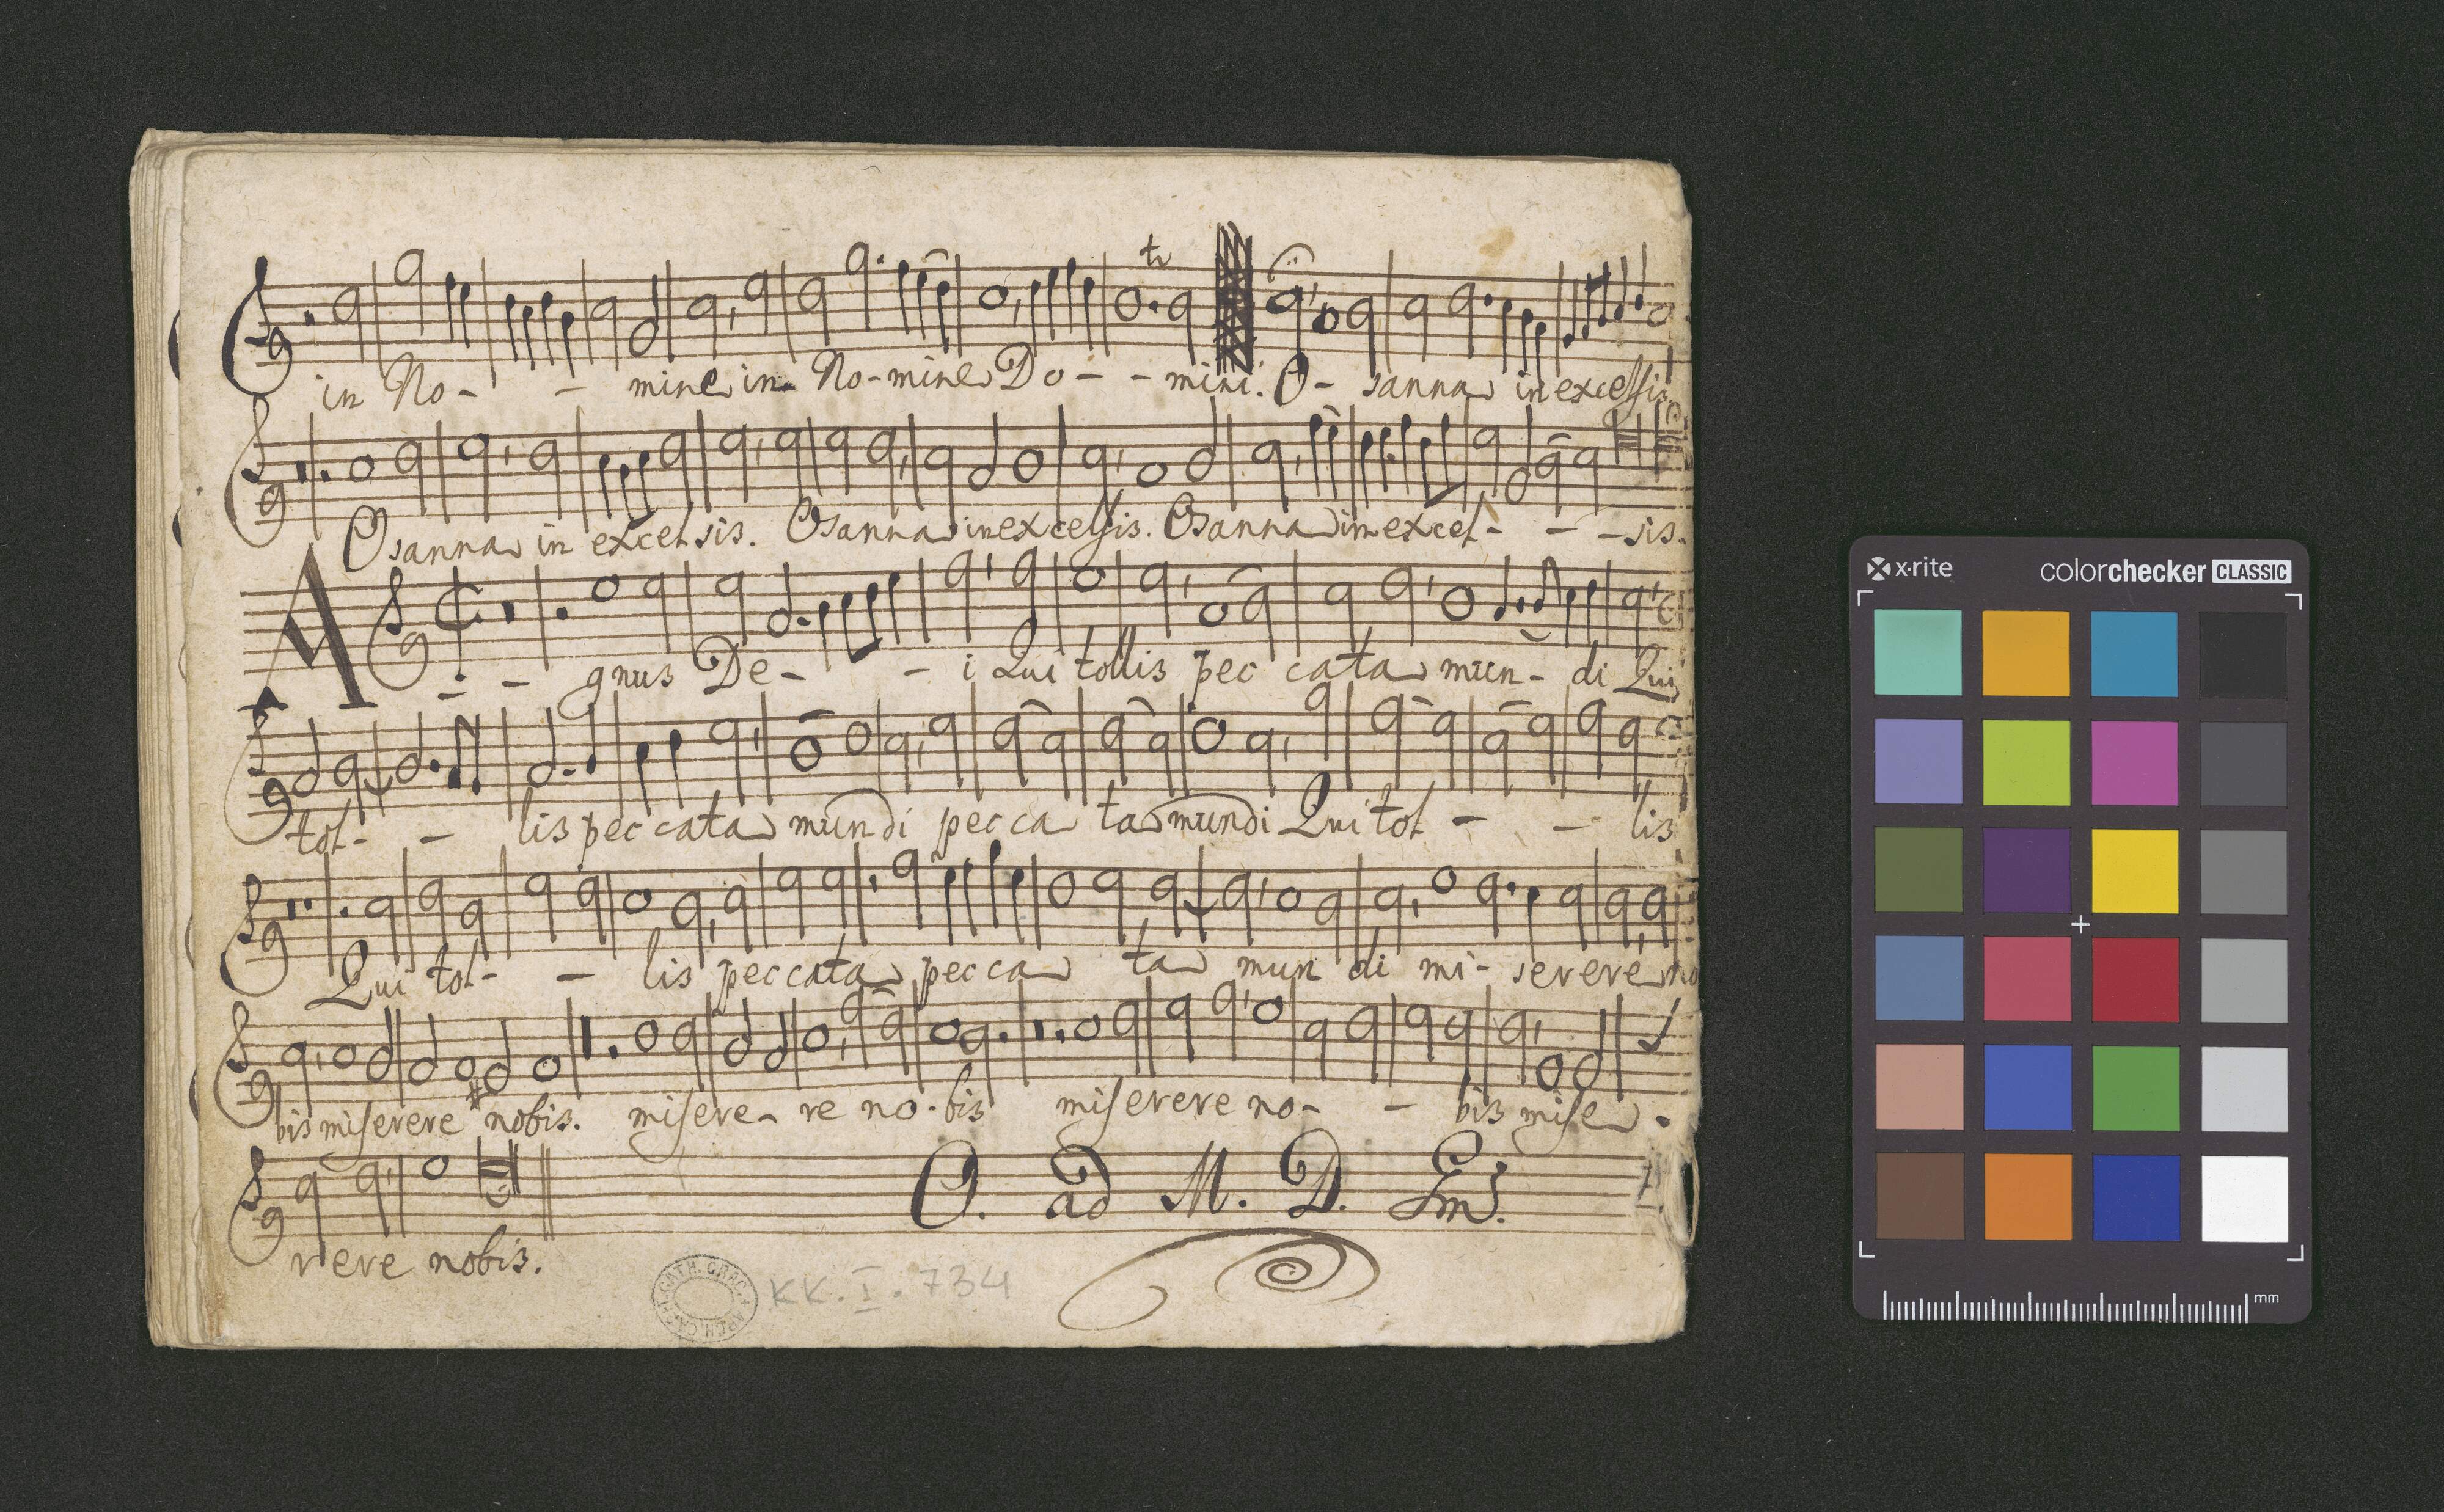 in No - - mine in No-mine Do - - mini. O- sanna in excelsis
Osanna in excelsis. Osanna in excelsis. Osanna in excel- - - sis.
A - - gnus De- - i Qui tollis pec cata mun- di Qui
tol- - lis pec cata mundi pec ca ta mundi Qui tol - - lis
Qui tol- - lis pec cata pec ca ta mun di mi- serere no
bis miserere nobis. misere- re no-bis miserere no- - bis mise -
rere nobis.
O. ad M. D. Em.
KK. I. 734
x·rite colorchecker CLASSIC
mm